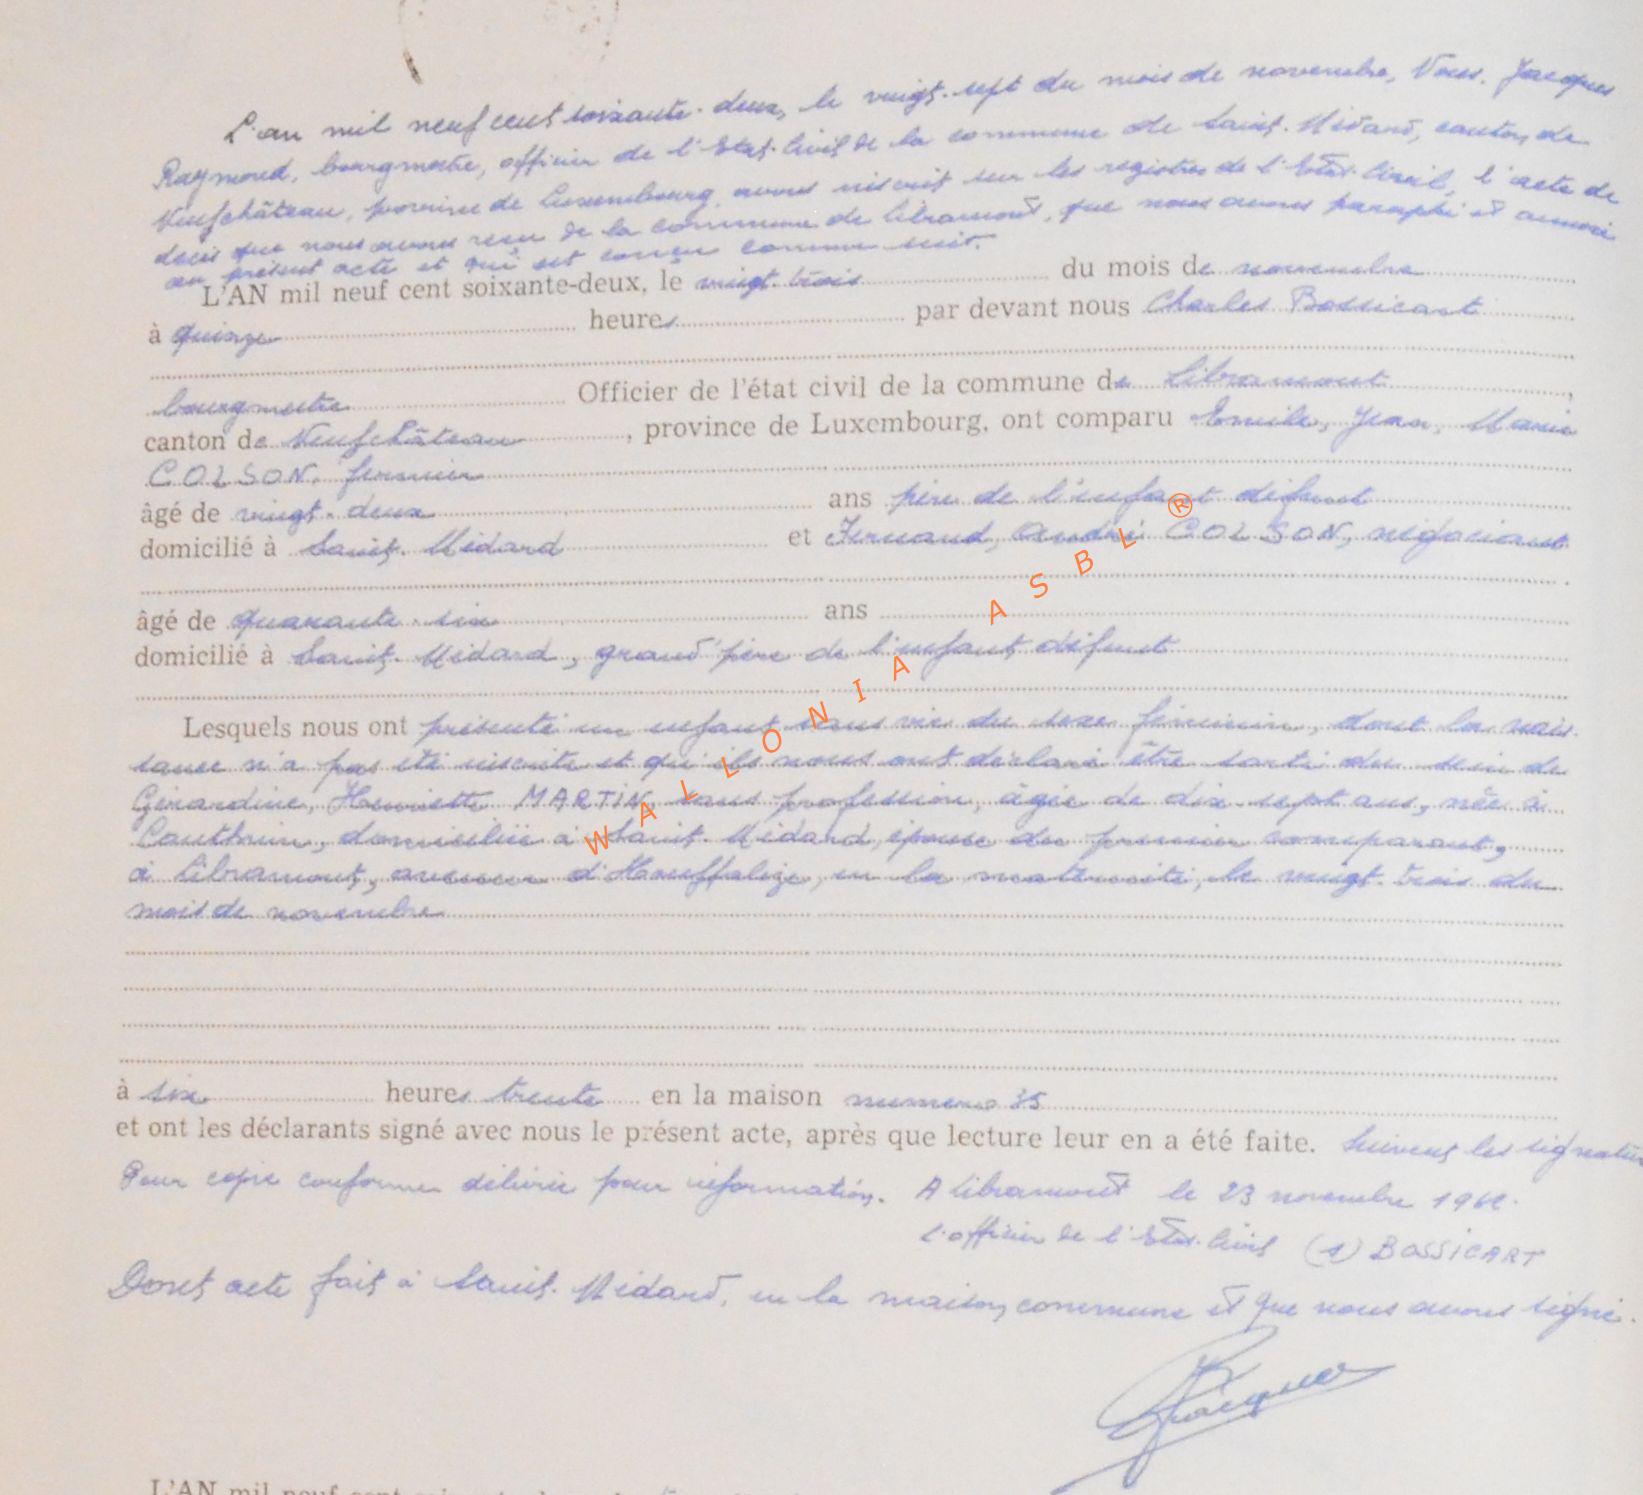 L'an mil neuf cent soixante-deux, le vingt-sept du mois de novembre, Nous, Jacques
Raymond, bourgmestre, officier de l'Etat-Civil de la commune de Saint-Médard, canton de
Neufchâteau, province de Luxembourg, avons inscrit sur les registres de l'Etat-Civil, l'acte de
décès que nous avons reçu de la commune de Libramont, que nous avons paraphé et annexé
au présent acte et qui est conçu comme suit.
L'AN mil neuf cent soixante-deux, le vingt-trois du mois de novembre
à quinze heures par devant nous Charles Bossicart
bourgmestre Officier de l'état civil de la commune de Libramont,
canton de Neufchâteau, province de Luxembourg, ont comparu Emile, Jean, Marie
COLSON, fermier
âgé de vingt-deux ans père de l'enfant défunt
domicilié à Saint-Médard et Fernand, André COLSON, négociant
âgé de quarante-six ans
domicilié à Saint-Médard, grand'père de l'enfant défunt
Lesquels nous ont présenté un enfant sans vie du sexe féminin, dont la nais-
sance n'a pas été inscrite et qu'ils nous ont déclaré être sorti du sein de
Gérardine, Henriette MARTIN sans profession, âgée de dix-sept ans, née à
domiciliée à Saint-Médard, épouse du premier comparant,
à Libramont, avenue d'Houffalize, en la maternité, le vingt-trois du
mois de novembre
à six heures trente en la maison numéro 35
et ont les déclarants signé avec nous le présent acte, après que lecture leur en a été faite. Suivent les signatures
Pour copie conforme délivrée pour information. A Libramont le 23 novembre 1962.
L'officier de l'Etat-Civil (s) BOSSICART
Dont acte fait à Saint-Médard, en la maison commune et que nous avons signé.
Jacques
L'AN mil neuf cent
WALLONIA ASBL ®